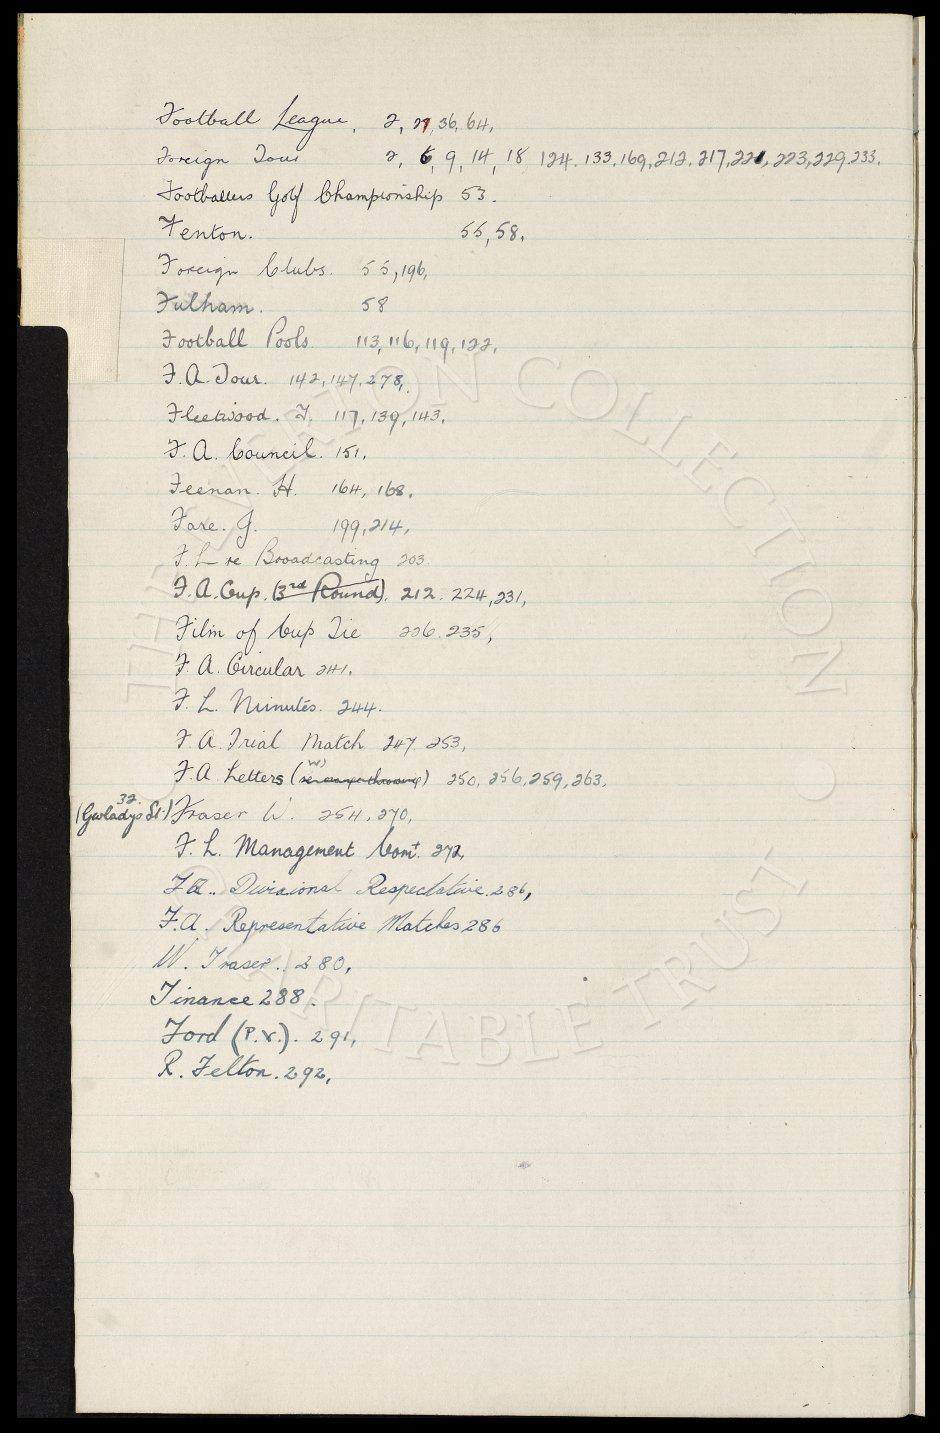 Football League, 2, 27, 36, 64,
Foreign Tour 2, 6, 9, 14, 18, 124. 133. 169, 212, 217, 221, 223, 229. 233.
Footballers Golf Championship 53.
Fenton. 55, 58,
Foreign Clubs. 55, 196,
Fulham. 58
Football Pools 113, 116, 119, 122,
F.A. Tour. 142, 147, 278,
Fleetwood. T. 117, 139, 143,
F. A. Council. 151,
Feenan. H. 164, 168,
Fare. J. 199, 214,
F. L re Broadcasting 203.
F.A. Cup. (3rd Round). 212. 224, 231,
Film of Cup Tie 226. 235,
F. A. Circular 241.
F. L. Minutes. 244.
F. A. Trial Match 247 253,
F.A. Letters (W) 250, 256, 259, 263,
(32. Gwladys St.) Fraser W. 254, 270,
F. L. Management Comt. 272,
F.A.. Divisional Respectative. 286,
F.A. Representative Matches 286
W. Fraser.. 280,
Finance 288.
Ford (P.X.). 291,
R. Felton. 292,
THE EVERTON COLLECTION
CHARITABLE TRUST